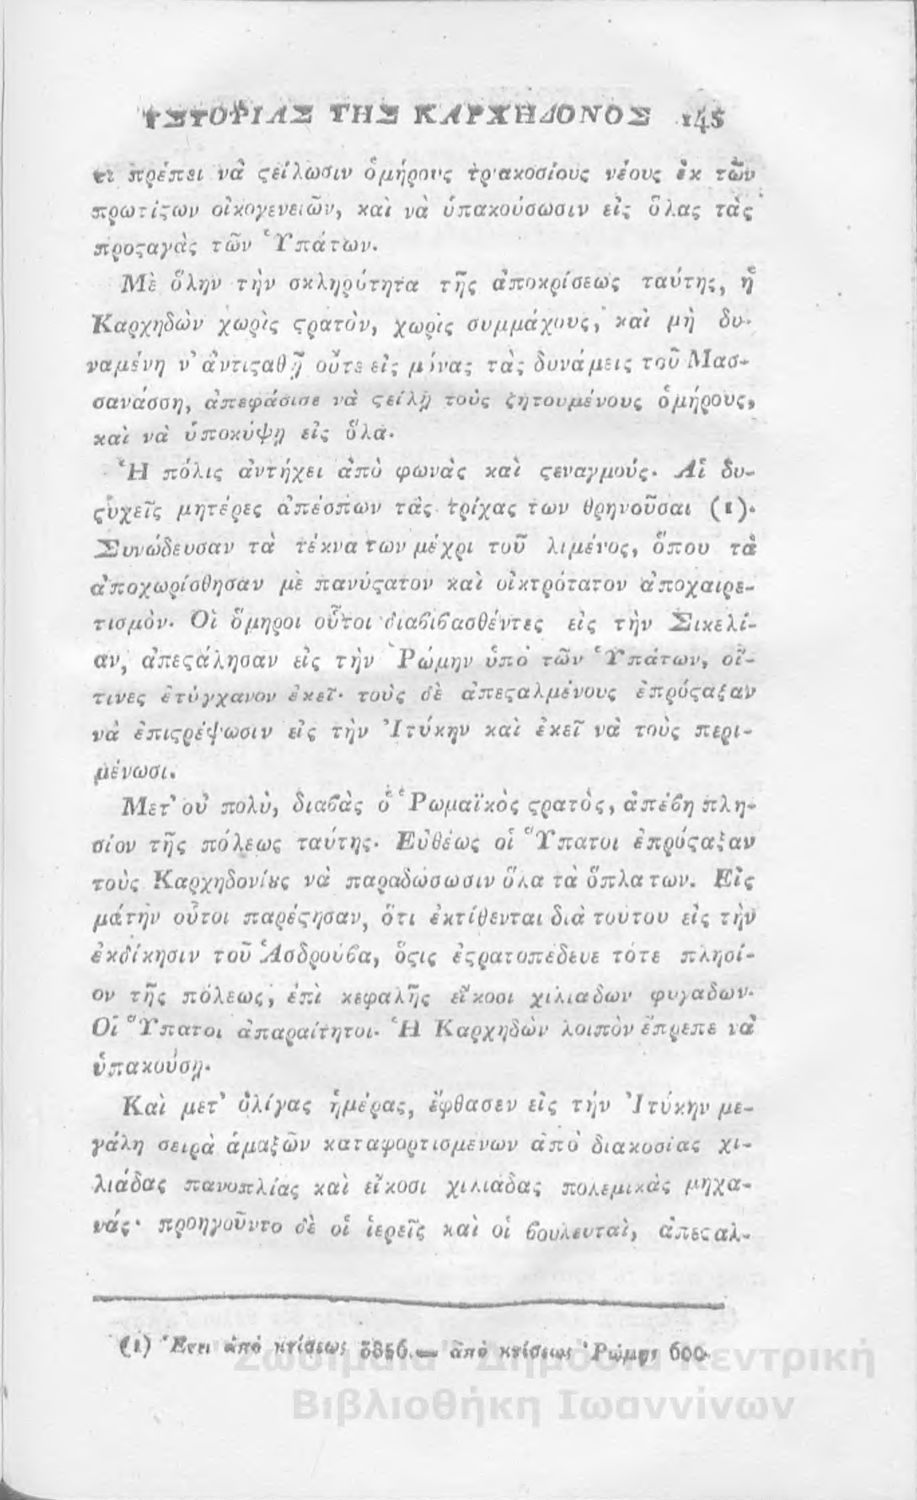 ΙΣΤΟΡΙΑΣ ΤΗΣ ΚΑΡΧΗΔΟΝΟΣ 145
τι πρέπει νὰ ϛείλωσιν ὁμήρους τριακοσίους νέους ἐκ τῶν
πρωτίϛων οἰκογενειῶν, καὶ νὰ ὑπακούσωσιν εἰς ὅλας τὰς
προϛαγὰς τῶν Ὑπάτων.
Μὲ ὅλην τὴν σκληρότητα τῆς ἀποκρίσεως ταύτης, ἡ
Καρχηδὼν χωρὶς ϛρατὸν, χωρὶς συμμάχους, καὶ μὴ δυ-
ναμένη ν' ἀντιϛαθῇ οὔτε εἰς μόνας τὰς δυνάμεις τοῦ Μασ-
σανάσση, ἀπεφάσισε νὰ ϛείλῃ τοὺς ζητουμένους ὁμήρους,
καὶ νὰ ὑποκύψῃ εἰς ὅλα.
Ἡ πόλις ἀντήχει ἀπὸ φωνὰς καὶ ϛεναγμούς. Αἱ δυ-
ϛυχεῖς μητέρες ἀπέσπων τὰς τρίχας των θρηνοῦσαι (1).
Συνώδευσαν τὰ τέκνα των μέχρι τοῦ λιμένος, ὅπου τὰ
ἀποχωρίσθησαν μὲ πανύϛατον καὶ οἰκτρότατον ἀποχαιρε-
τισμόν. Οἱ ὅμηροι οὗτοι διαβιβασθέντες εἰς τὴν Σικελί-
αν, ἀπεϛάλησαν εἰς τὴν Ῥώμην ὑπὸ τῶν Ὑπάτων, οἵ-
τινες ἐτύγχανον ἐκεῖ· τοὺς δὲ ἀπεϛαλμένους ἐπρόϛαξαν
νὰ ἐπιϛρέψωσιν εἰς τὴν Ἰτύκην καὶ ἐκεῖ νὰ τοὺς περι-
μένωσι.
Μετ' οὐ πολὺ, διαβὰς ὁ Ῥωμαϊκὸς ϛρατὸς, ἀπέβη πλη-
σίον τῆς πόλεως ταύτης. Εὐθέως οἱ Ὕπατοι ἐπρόϛαξαν
τοὺς Καρχηδονίȣς νὰ παραδώσωσιν ὅλα τὰ ὅπλα των. Εἰς
μάτην οὗτοι παρέϛησαν, ὅτι ἐκτίθενται διὰ τούτου εἰς τὴν
ἐκδίκησιν τοῦ Ἀσδρούβα, ὅϛις ἐϛρατοπέδευε τότε πλησί-
ον τῆς πόλεως, ἐπὶ κεφαλῆς εἴκοσι χιλιάδων φυγάδων.
Οἱ Ὕπατοι ἀπαραίτητοι. Ἡ Καρχηδὼν λοιπὸν ἔπρεπε νὰ
ὑπακούσῃ.
Καὶ μετ' ὀλίγας ἡμέρας, ἔφθασεν εἰς τὴν Ἰτύκην με-
γάλη σειρὰ ἁμαξῶν καταφορτισμένων ἀπὸ διακοσίας χι-
λιάδας πανοπλίας καὶ εἴκοσι χιλιάδας πολεμικὰς μηχα-
νάς· προηγοῦντο δὲ οἱ ἱερεῖς καὶ οἱ βουλευταὶ, ἀπεϛαλ-
(1) Ἔτει ἀπὸ κτίσεως 3856.— ἀπὸ κτίσεως Ῥώμης 600.
Ζωσιμαία Δημόσια Κεντρική
Βιβλιοθήκη Ιωαννίνων